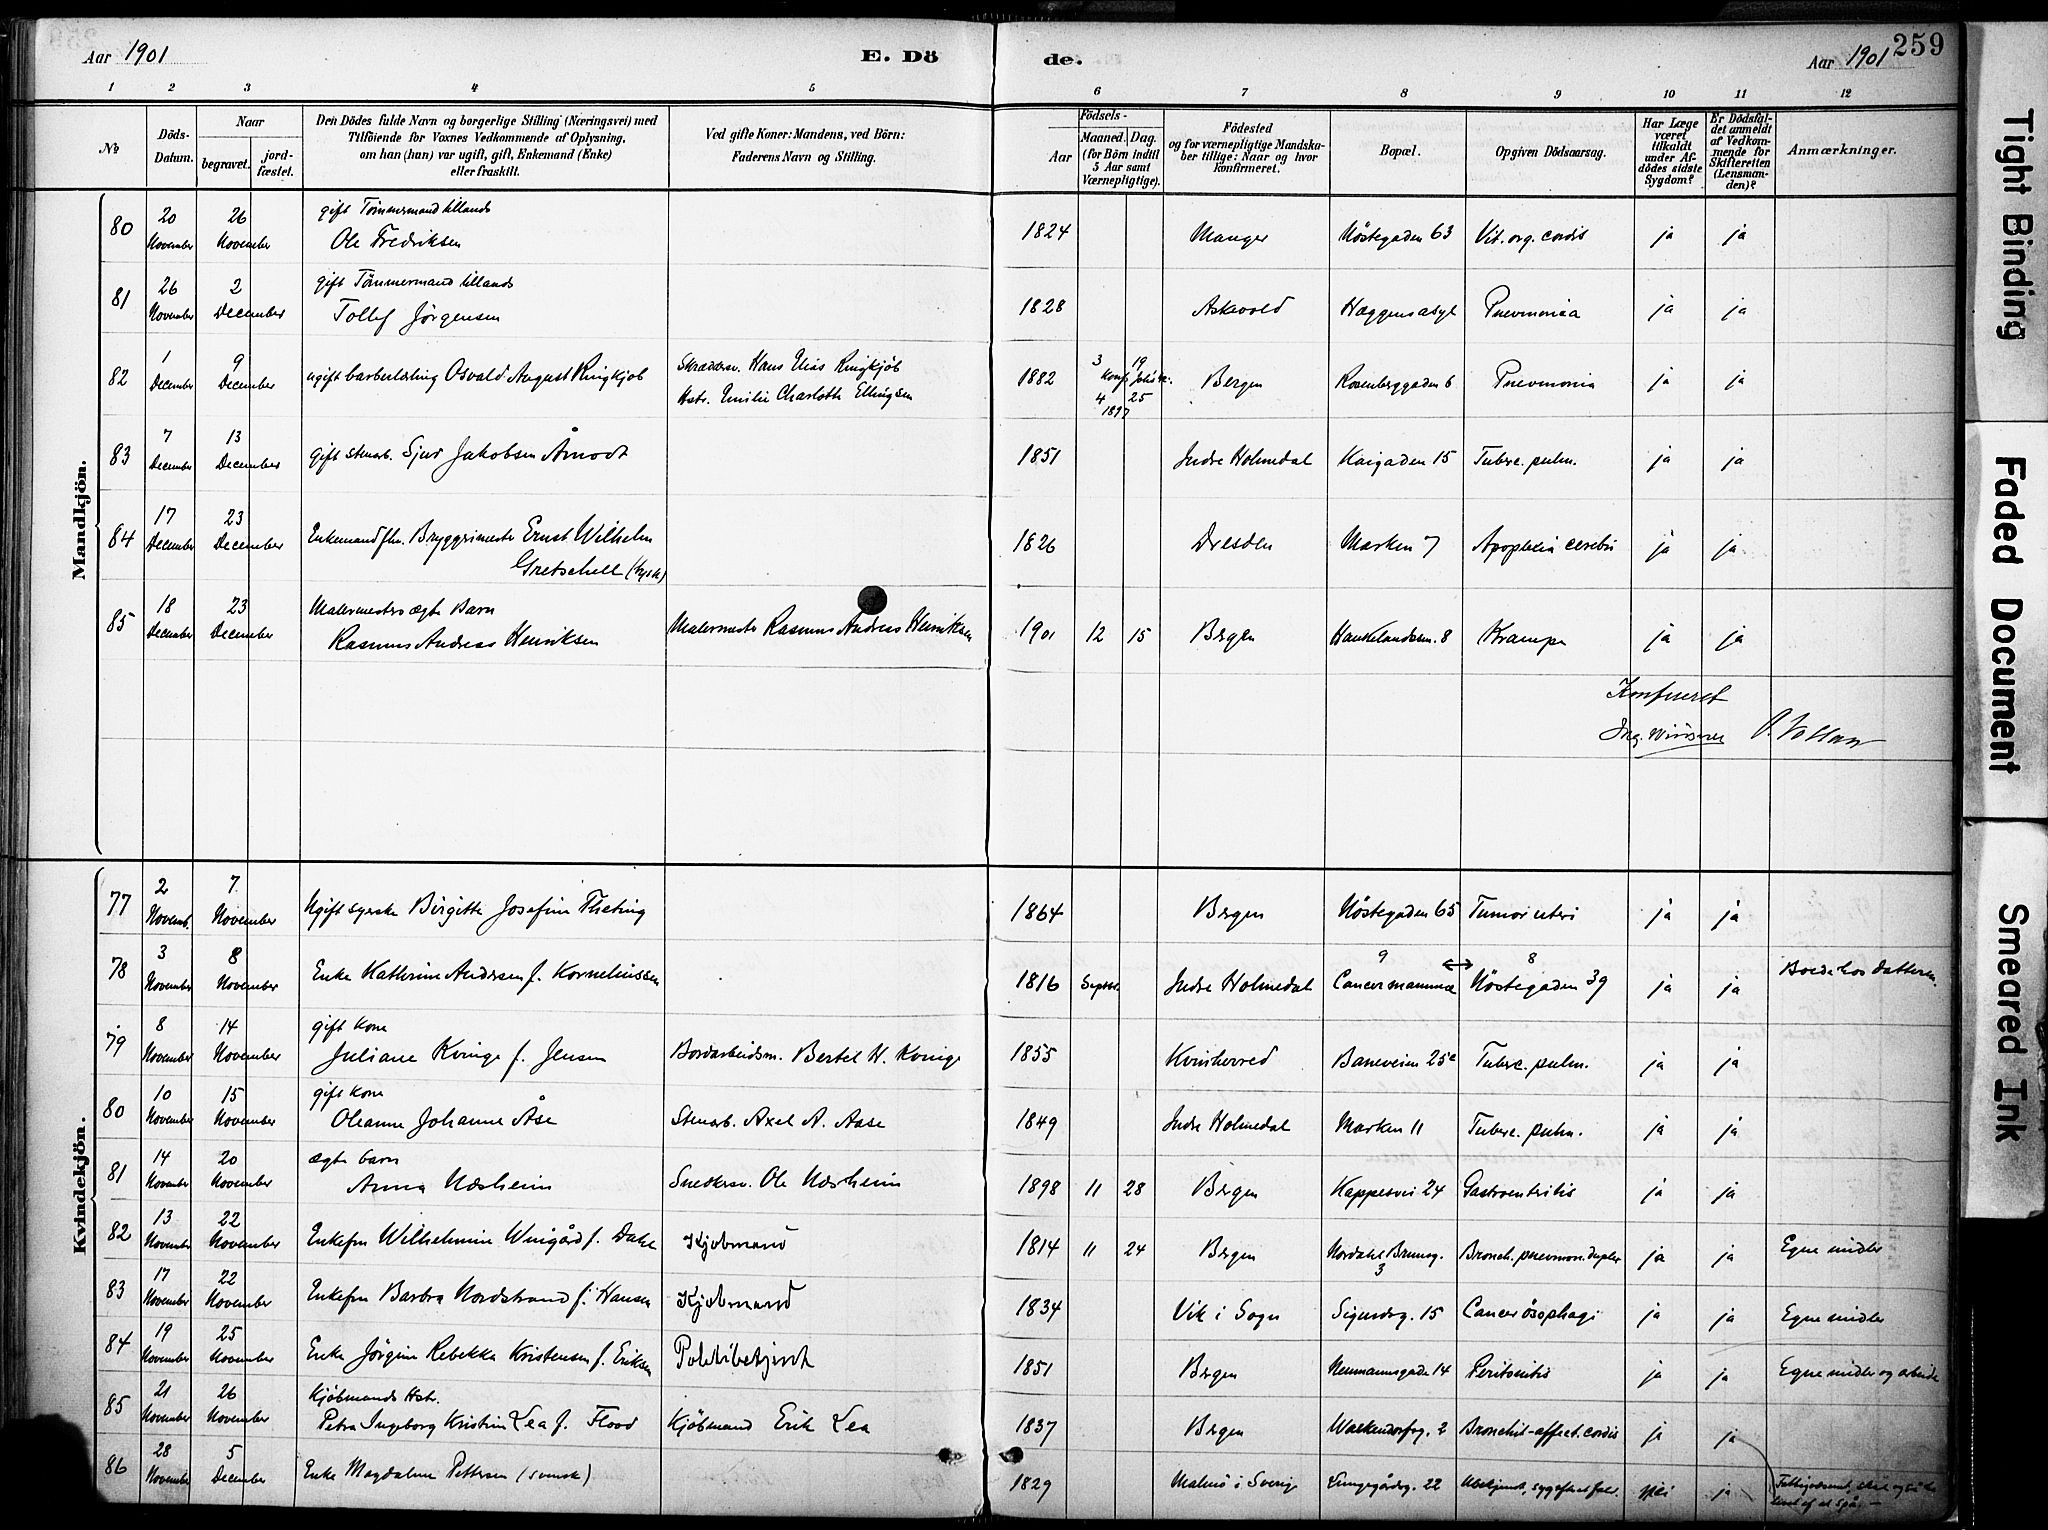 Aar 1901
E. Dö
de.
Aar 1901
259
1 2 3 4 5 6 7 8 9 10 11 12
№
Döds-Datum.
Naar
begravet.
jord-fæstet.
Den Dödes fulde Navn og borgerlige Stilling (Næringsvei) med
Tilföiende for Voxnes Vedkommende af Oplysning,
om han (hun) var ugift, gift, Enkemand (Enke)
eller fraskilt.
Ved gifte Koner: Mandens, ved Börn:
Faderens Navn og Stilling.
Födsels-
Aar
Maaned.
Dag.
(for Börn indtil
5 Aar samt
Værnepligtige).
Födested
og for værnepligtige Mandska-
ber tillige: Naar og hvor
konfirmeret.
Bopæl.
Opgiven Dödsaarsag.
Har Læge
været
tilkaldt
under Af-
dödes sidste
Sygdom?
Er Dödsfal-
det anmeldt
af Vedkom-
mende for
Skifteretten
(Lensman-
den)?
Anmærkninger.
Mandkjön.
80 20 November 26 November gift Tømmermand tillands
Ole Fredriksen 1824 Manger Nøstegaden 63 Vit. org. cordis ja ja
81 26 November 2 December gift Tømmermand tillands
Tollef Jørgensen 1828 Askevold Haggensasyl Pnevmonia ja ja
82 1 December 9 December ugift barberlærling Osvald August Ringkjøb Skræddersv. Hans Elias Ringkjøb
Hstr. Emilie Charlotte Ellingsen 1882 3 19 Konf. Johsk. 4 25 1897 Bergen Rosenberggaden 6 Pnevmonia ja ja
83 7 December 13 December gift stenarb. Sjur Jakobsen Åmodt 1851 Indre Holmedal Kaigaden 15 Tuberc. pulm. ja ja
84 17 December 23 December Enkemand fhv. Bryggrimester Ernst Wilhelm
Gretschell (tysk) 1826 Dresden Marken 7 Apoplexia cerebri ja ja
85 18 December 23 December Malermesters ægte Barn
Rasmus Andreas Henriksen Malermester Rasmus Andreas Henriksen 1901 12 15 Bergen Haukelandsvn. 8 Krampe ja ja
Konfereret
Kvindekjön.
77 2 Novemb. 7 November Ugift syerske Birgitte Josefine Theting 1864 Bergen Nøstegaden 65 Tumor uteri ja ja
78 3 November 8 November Enke Kathrine Andersen f. Korneliussen 1816 Septbr. Indre Holmedal 9 Cancer mammæ ↔ 8 Nøstegaden 39 ja ja Boede hos datteren.
79 8 November 14 November gift kone
Juliane Kvinge f. Jensen Bordarbeidsm. Bertel H. Kvinge 1855 Kvinherred Baneveien 25a Tuberc. pulm. ja ja
80 10 November 15 November gift kone
Oleanne Johanne Åse Stenarb. Axel A. Aase 1849 Indre Holmedal Marken 11 Tuberc. pulm. ja ja
81 14 November 20 November ægte barn
Anna Næsheim Snedkersv. Ole Næsheim 1898 11 28 Bergen Kappesvei 24 Gastroenteritis ja ja
82 13 November 22 November Enkefru Wilhelmine Wingård f. Dahl Kjøbmand 1814 11 24 Bergen Nordahl Brunsg. 3 Bronch. pnevmon. duplex ja ja Egne midler
83 17 November 22 November Enkefru Barbra Nordstrand f. Hansen Kjøbmand 1834 Vik i Sogn Sigurdsg. 15 Cancer øsophagi ja ja Egne midler
84 19 November 25 November Enke Jørgine Rebekka Kristensen f. Eriksen Politibetjent 1851 Bergen Neumannsgade 14 Peritonitis ja ja Egne midler og arbeide
85 21 November 26 November Kjøbmands Hstr.
Petra Ingeborg Kristine Lea f. Flood Kjøbmand Erik Lea 1837 Bergen Walkendorfsg. 2 Bronchit-affect. cordis ja ja
86 28 November 5 December Enke Magdalene Pettersen (svensk) 1829 Malmø i Sverige Lungegårdsg. 22 Ubekjendt, nei ja
Tight Binding
Faded Document
Smeared Ink